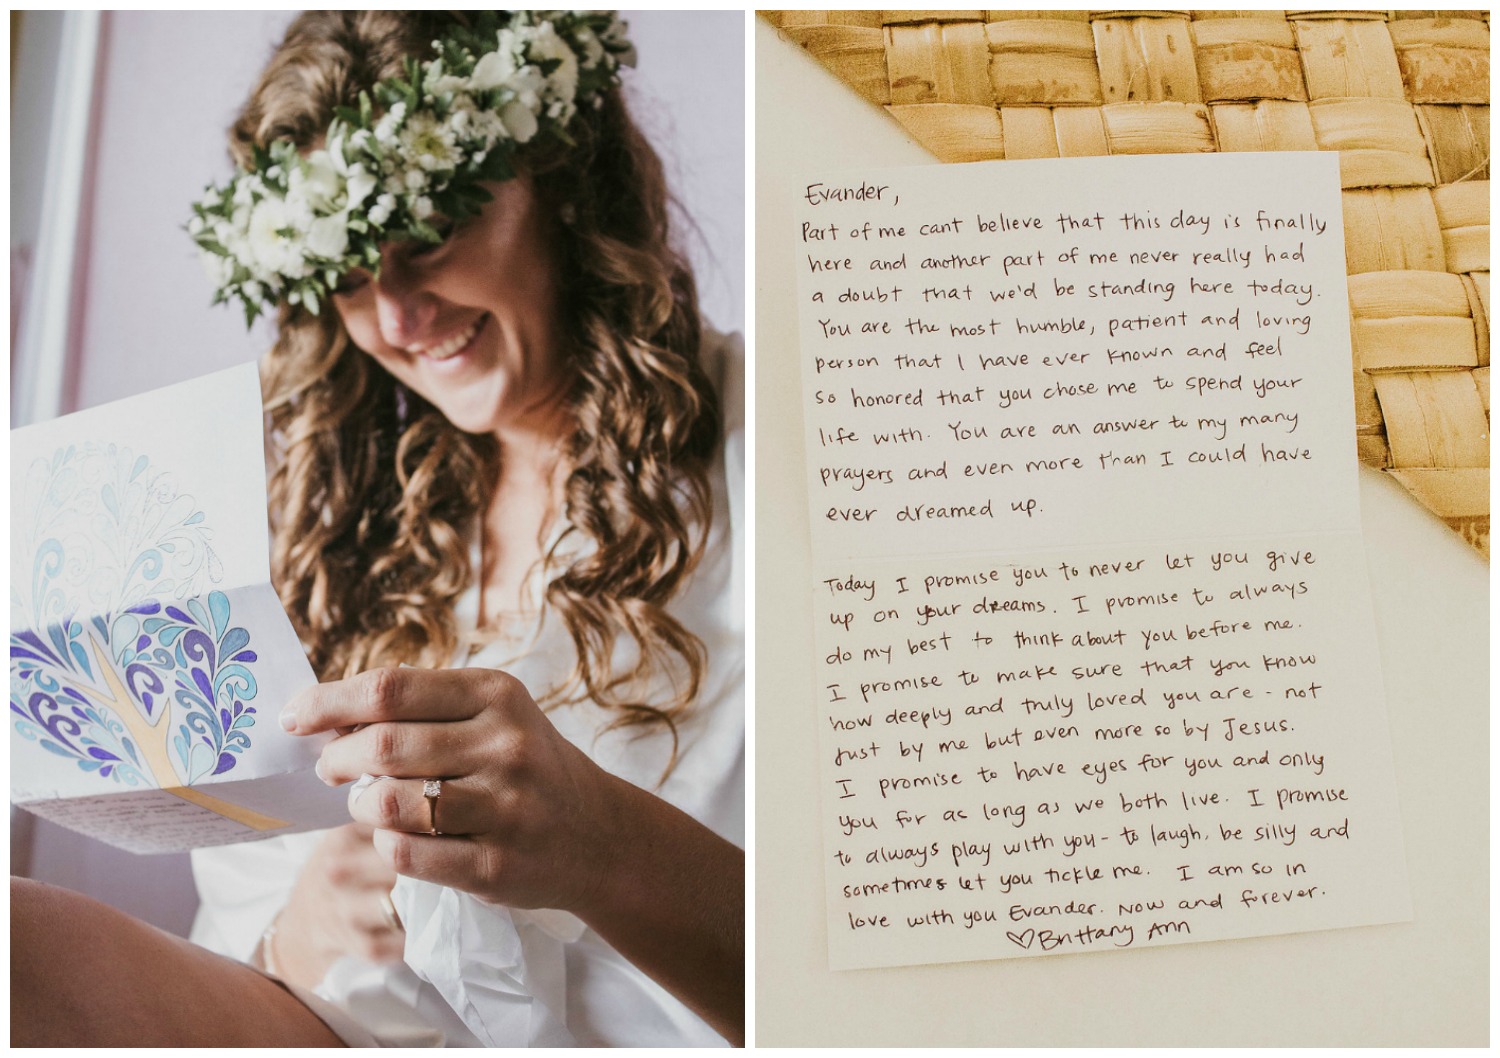 Evander,
Part of me cant believe that this day is finally
here and another part of me never really had
a doubt that we'd be standing here today.
You are the most humble, patient and loving
person that I have ever known and feel
so honored that you chose me to spend your
life with. You are an answer to my many
prayers and even more than I could have
ever dreamed up.
Today I promise you to never let you give
up on your dreams. I promise to always
do my best to think about you before me.
I promise to make sure that you know
how deeply and truly loved you are - not
just by me but even more so by Jesus.
I promise to have eyes for you and only
you for as long as we both live. I promise
to always play with you - to laugh, be silly and
sometimes let you tickle me. I am so in
love with you Evander. Now and forever.
♡ Brittany Ann